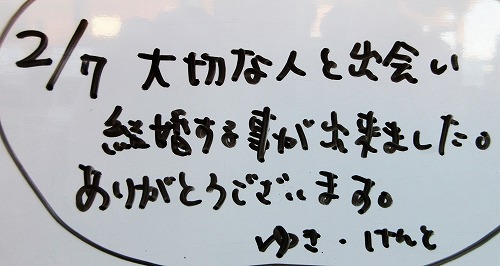 2/7 大切な人と出会い
結婚する事が出来ました。
ありがとうございます。
ゆき・けんと